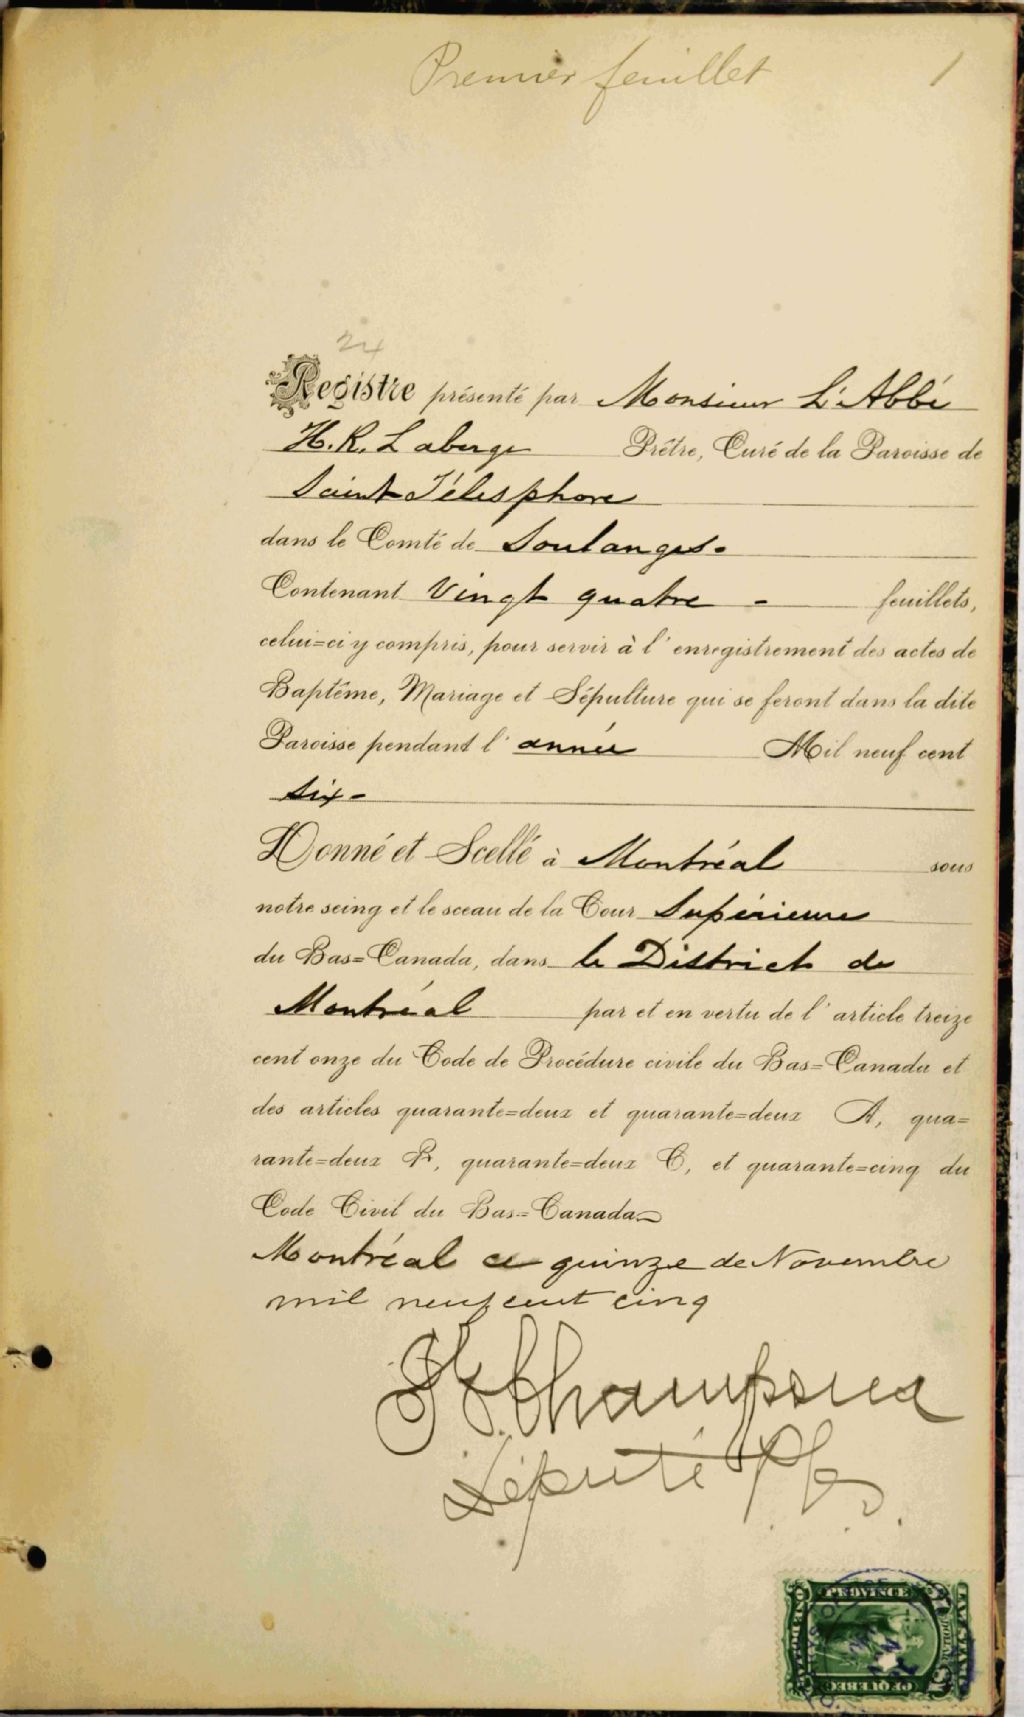 Premier feuillet 1
24
Registre présenté par Monsieur L'Abbé
H. R. Laberge Prêtre, Curé de la Paroisse de
Saint Télesphore
dans le Comté de Soulanges.
Contenant Vingt quatre - feuillets,
celui=ci y compris, pour servir à l'enregistrement des actes de
Baptême, Mariage et Sépulture qui se feront dans la dite
Paroisse pendant l'année Mil neuf cent
six -
Donné et Scellé à Montréal sous
notre seing et le sceau de la Cour Supérieure
du Bas=Canada, dans le District de
Montréal par et en vertu de l'article treize
cent onze du Code de Procédure civile du Bas=Canada et
des articles quarante=deux et quarante=deux A, qua=
rante=deux B, quarante=deux C, et quarante=cinq du
Code Civil du Bas=Canada
Montréal ce quinze de Novembre
mil neuf cent cinq
Champoux
Député P
PROVINCE
OF QUEBEC